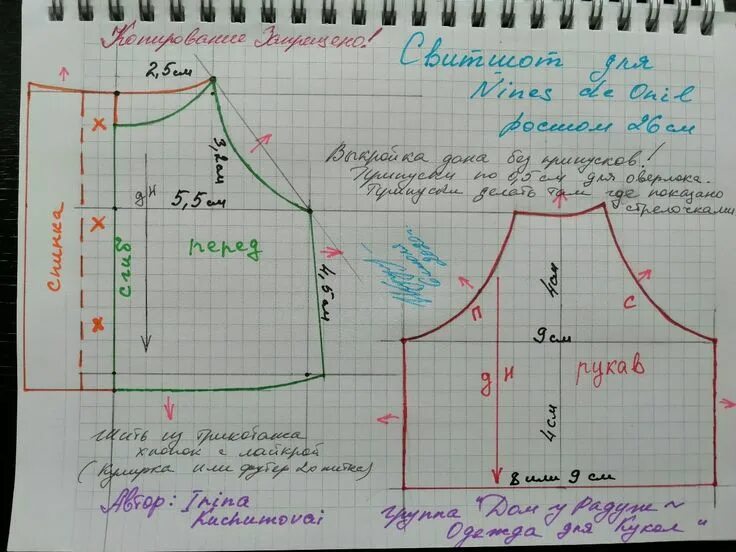 Копирование Запрещено!
Свитшот для
Nines de Onil
ростом 26см
Выкройка дана без припусков!
Припуски по 0,5см для оверлока.
Припуски делать там где показано
стрелочками
2,5см
3,2см
5,5см
дН
перед
4,5см
спинка
сгиб
х
х
х
4см
П
С
9см
дН
рукав
4см
8 или 9 см
Шить из трикотажа
хлопок с лайкрой
(Кулирка или футер 2х нитка)
Автор: Irina
Kuchumovai
группа "Дом у Радуги ~
Одежда для Кукол"